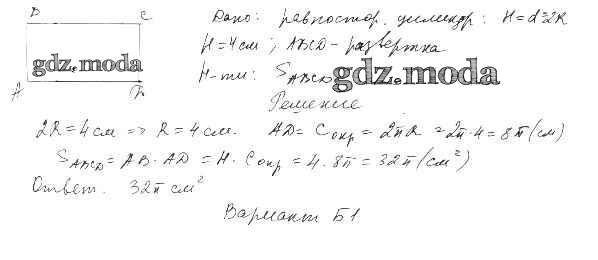 B C Дано: равностор. цилиндр: H = d = 2R
H = 4 см; ABCD - развертка
gdz.moda
A D Н-ти: S ABCD gdz.moda
Решение
2R = 4 см => R = 4 см. AD = C окр = 2πR = 2π·4 = 8π (см)
S ABCD = AB · AD = H · C окр = 4 · 8π = 32π (см²)
Ответ. 32π см²
Вариант Б1